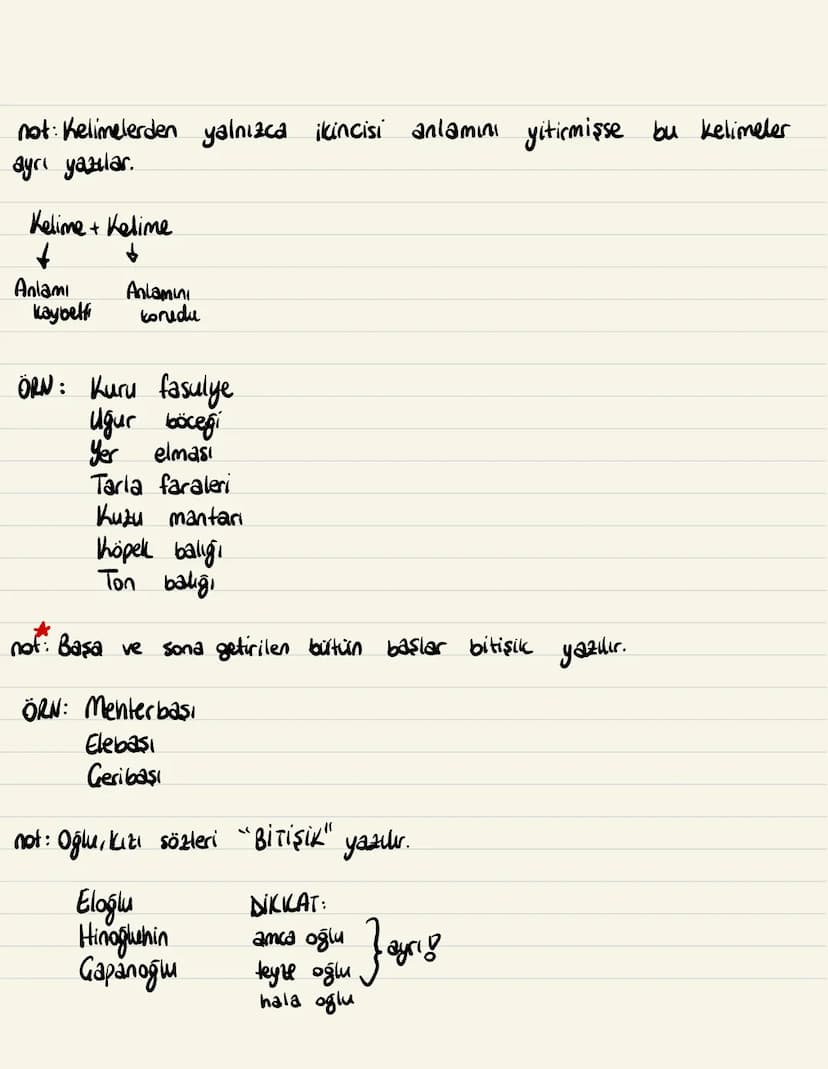 not: Kelimelerden yalnızca ikincisi anlamını yitirmişse bu kelimeler
ayrı yazılar.
Kelime + Kelime
↓ ↓
Anlamı Anlamını
kaybetti korudu
ÖRN: Kuru fasulye
Uğur böceği
Yer elması
Tarla faraleri
Kuzu mantarı
Köpek balığı
Ton balığı
not: Başa ve sona getirilen bütün başlar bitişik yazılır.
ÖRN: Mehterbaşı
Elebaşı
Çeribaşı
not: Oğlu, kızı sözleri "BİTİŞİK" yazılır.
Eloğlu DİKKAT:
Hinoğluhin amca oğlu
Çapanoğlu teyze oğlu } ayrı!
hala oğlu